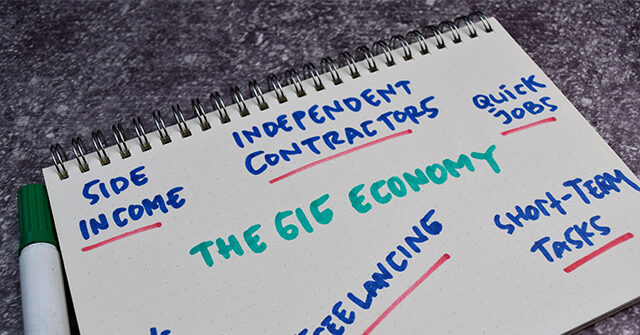 SIDE
INCOME
INDEPENDENT
CONTRACTORS
QUICK
JOBS
THE GIG ECONOMY
REELANCING
SHORT-TERM
TASKS